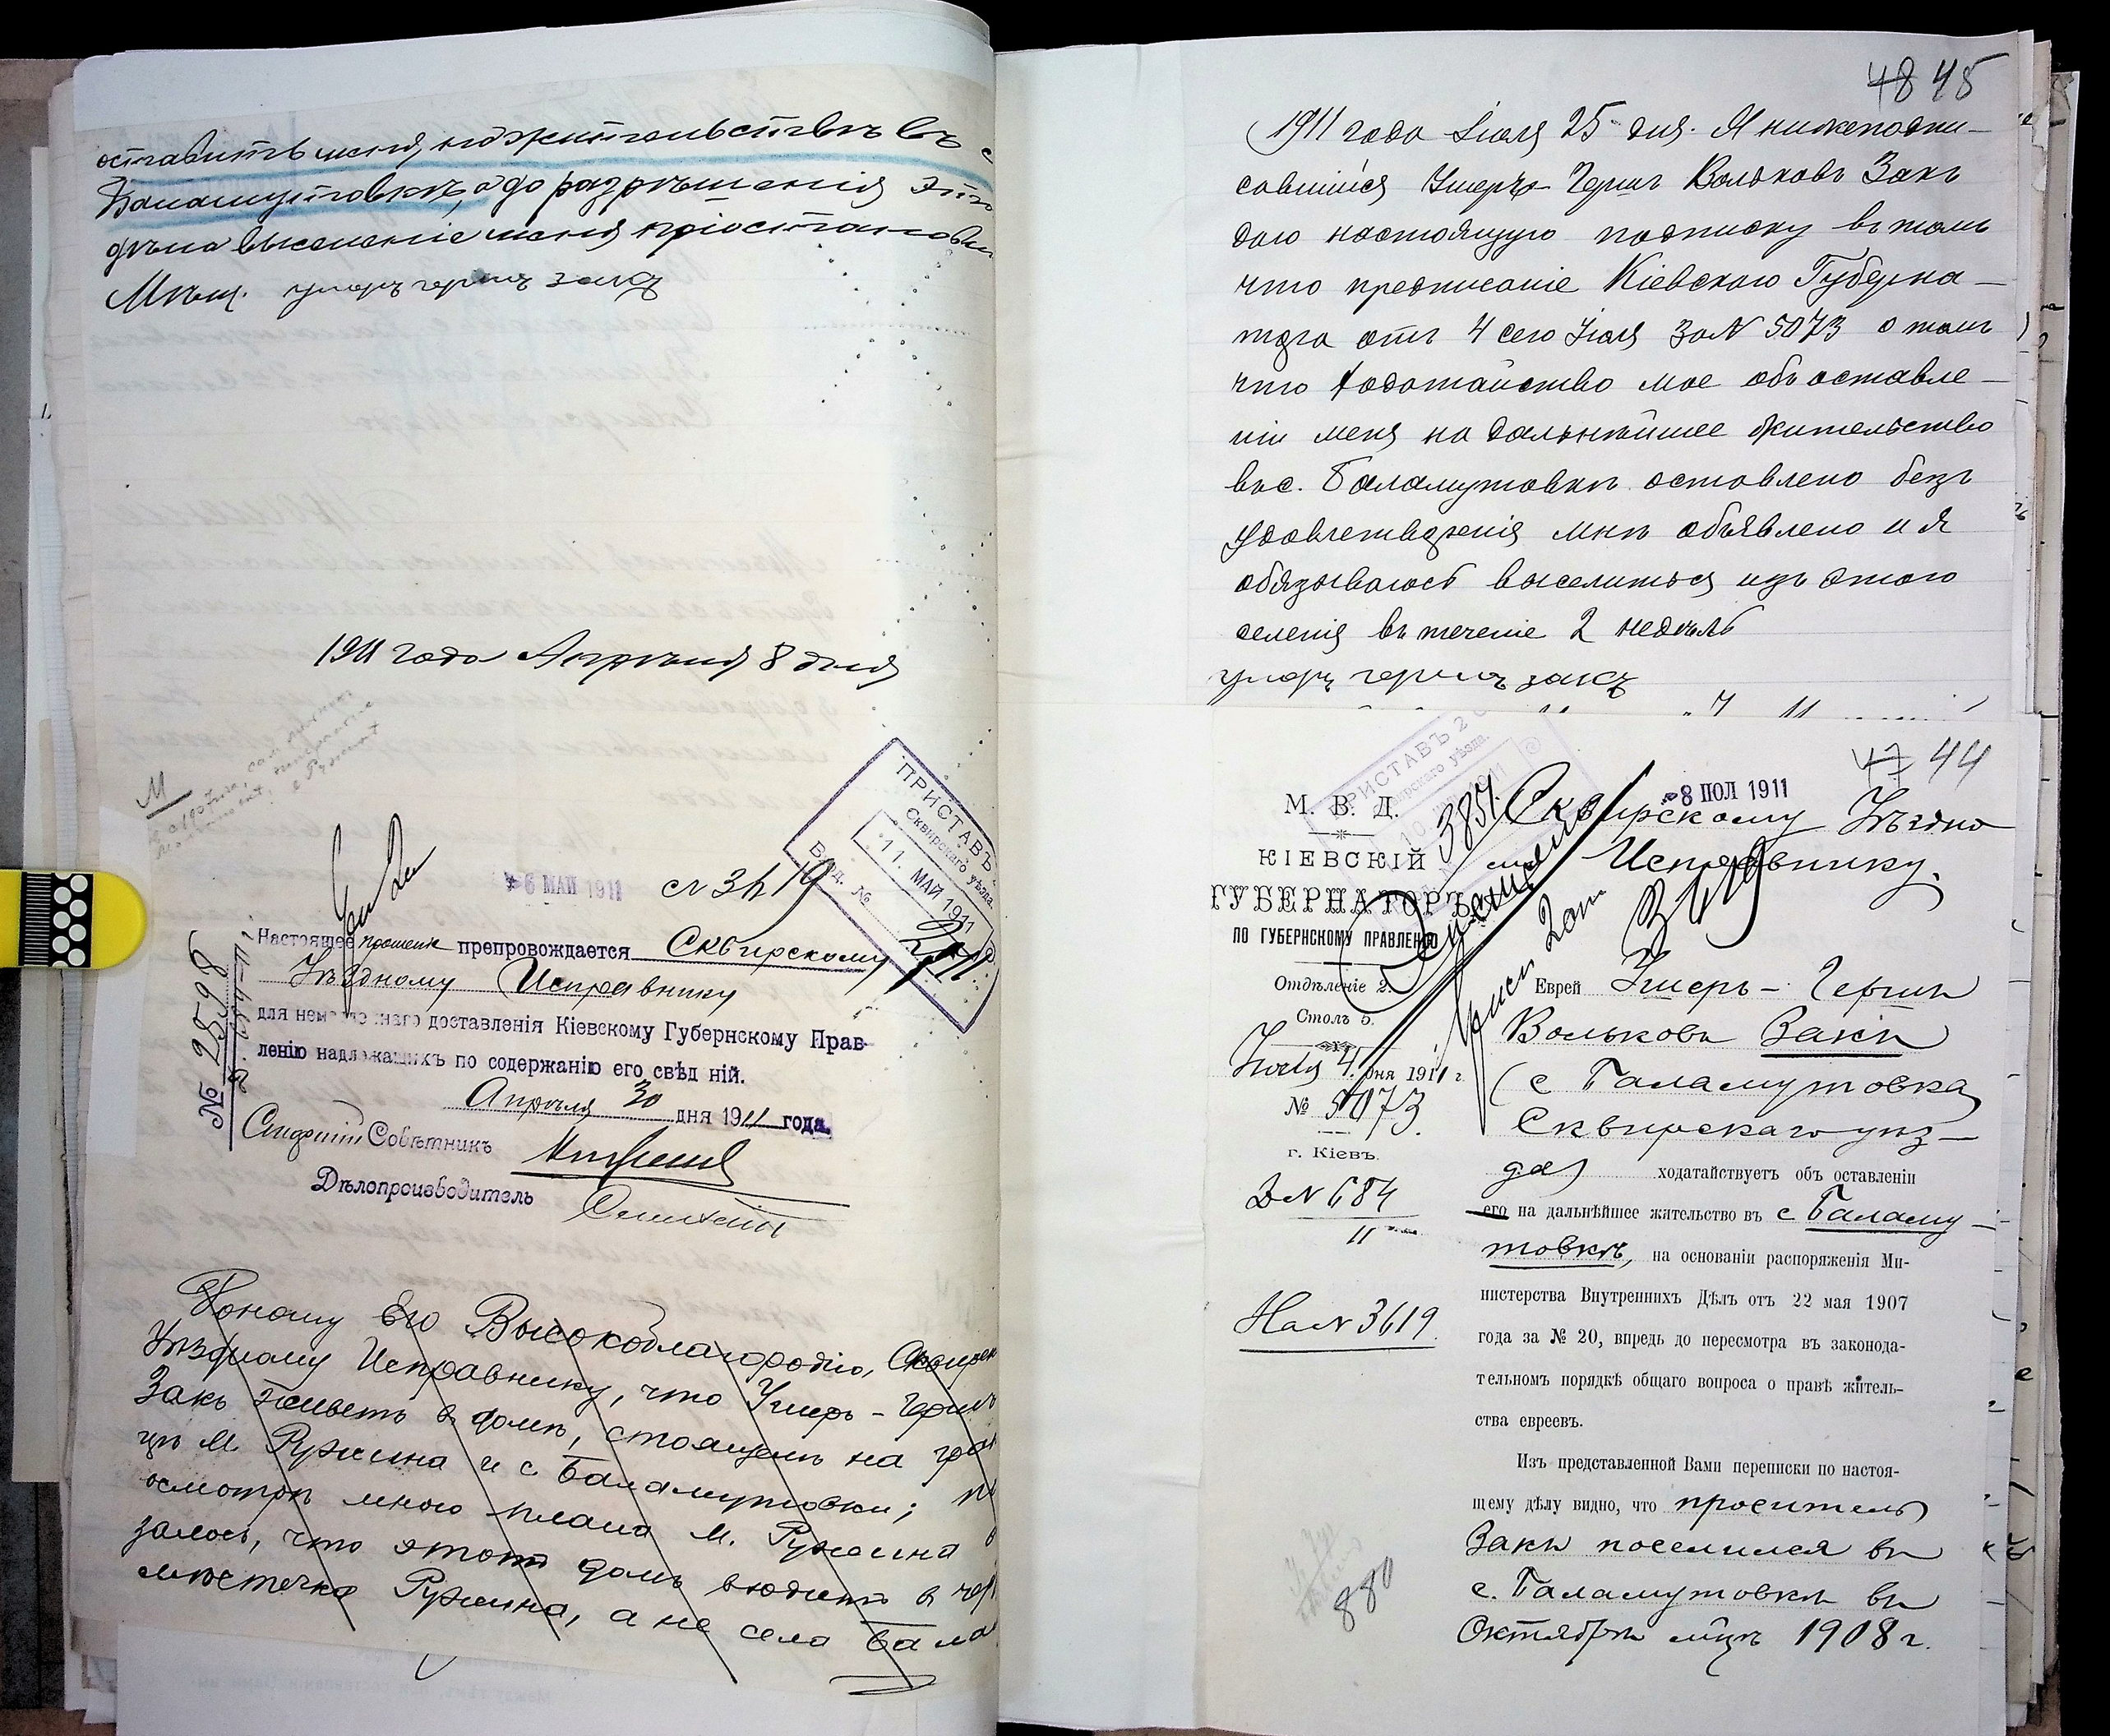 оставить меня, на жительствѣ въ с
Баламутовкѣ, а до разрѣшенія этого
дѣла выселеніе меня пріостановить
Мѣщ. умеръ гершъ закъ
1911 года Апрѣля 8 дня
М
6 МАЙ 1911
№ 3619
ПРИСТАВЪ
Сквирскаго уѣзда.
11. МАЙ 1911
Вход. №
Настоящее прошеніе препровождается Сквирскому
Уѣздному Исправнику
для немедленнаго доставленія Кіевскому Губернскому Прав-
ленію надлежащихъ по содержанію его свѣд ній.
Апрѣля 30 дня 1911 года.
№ 2598
Совѣтникъ
Дѣлопроизводитель
Доношу Его Высокоблагородію, Сквирск
Уѣздному Исправнику, что Умеръ-Гершъ
Закъ живетъ въ домѣ, стоящемъ на гран
цѣ М. Ружина и с. Баламутовки; по
осмотрѣ мною плана М. Ружина
залось, что этотъ домъ входитъ в чер
мѣстечка Ружина, а не села Бала
48 45
1911 года Іюля 25 дня. Я нижеподпи-
савшійся Умеръ Гершъ Вольковъ Закъ
даю настоящую подписку въ томъ
что предписаніе Кіевскаго Губерна-
тора отъ 4 сего Іюля за № 5073 о томъ
что ходотайство мое объ оставле-
ніи меня на дальнѣйшее жительство
въ с. Баламутовкѣ оставлено безъ
удовлетворенія мнѣ объявлено и я
обязываюсь выселиться изъ этого
селенія въ теченіе 2 недѣль
умеръ гершъ закъ
47 44
ПРИСТАВЪ 2
8 ІЮЛ 1911
М. В. Д.
КІЕВСКІЙ
ГУБЕРНАТОРЪ
ПО ГУБЕРНСКОМУ ПРАВЛЕНІЮ
Отдѣленіе 2.
Столъ 5.
Іюля 4. дня 1911 г.
№ 5073.
г. Кіевъ.
№ 684
11
На № 3619.
880
3851
Сквирскому Уѣздно
му Исправнику.
Еврей Умеръ-Гершъ
Вольковъ Закъ
(с Баламутовка
Сквирскаго уѣз-
да) ходатайствуетъ объ оставленіи
его на дальнѣйшее жительство въ с Баламу-
товкѣ, на основаніи распоряженія Ми-
нистерства Внутреннихъ Дѣлъ отъ 22 мая 1907
года за № 20, впредь до пересмотра въ законода-
тельномъ порядкѣ общаго вопроса о правѣ житель-
ства евреевъ.
Изъ представленной Вами переписки по настоя-
щему дѣлу видно, что проситель
Закъ поселился въ
с. Баламутовкѣ въ
Октябрѣ мѣцѣ 1908 г.